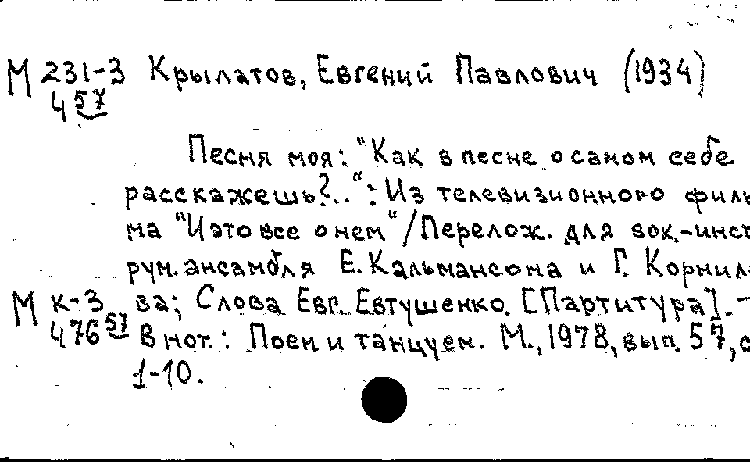 М 231-3 Крылатов, Евгений Павлович (1934)
4 57
Песня моя: "Как в песне о самом себе
расскажешь?..": Из телевизионного филь
ма "И это все о нем"/Перелож. для вок.-инст
рум. ансамбля Е. Кальмансона и Г. Корнил
М к-3 ва; Слова Евг. Евтушенко. [Партитура]. -
476 57 В нот.: Поем и танцуем. М., 1978, вып. 57, с
1-10.